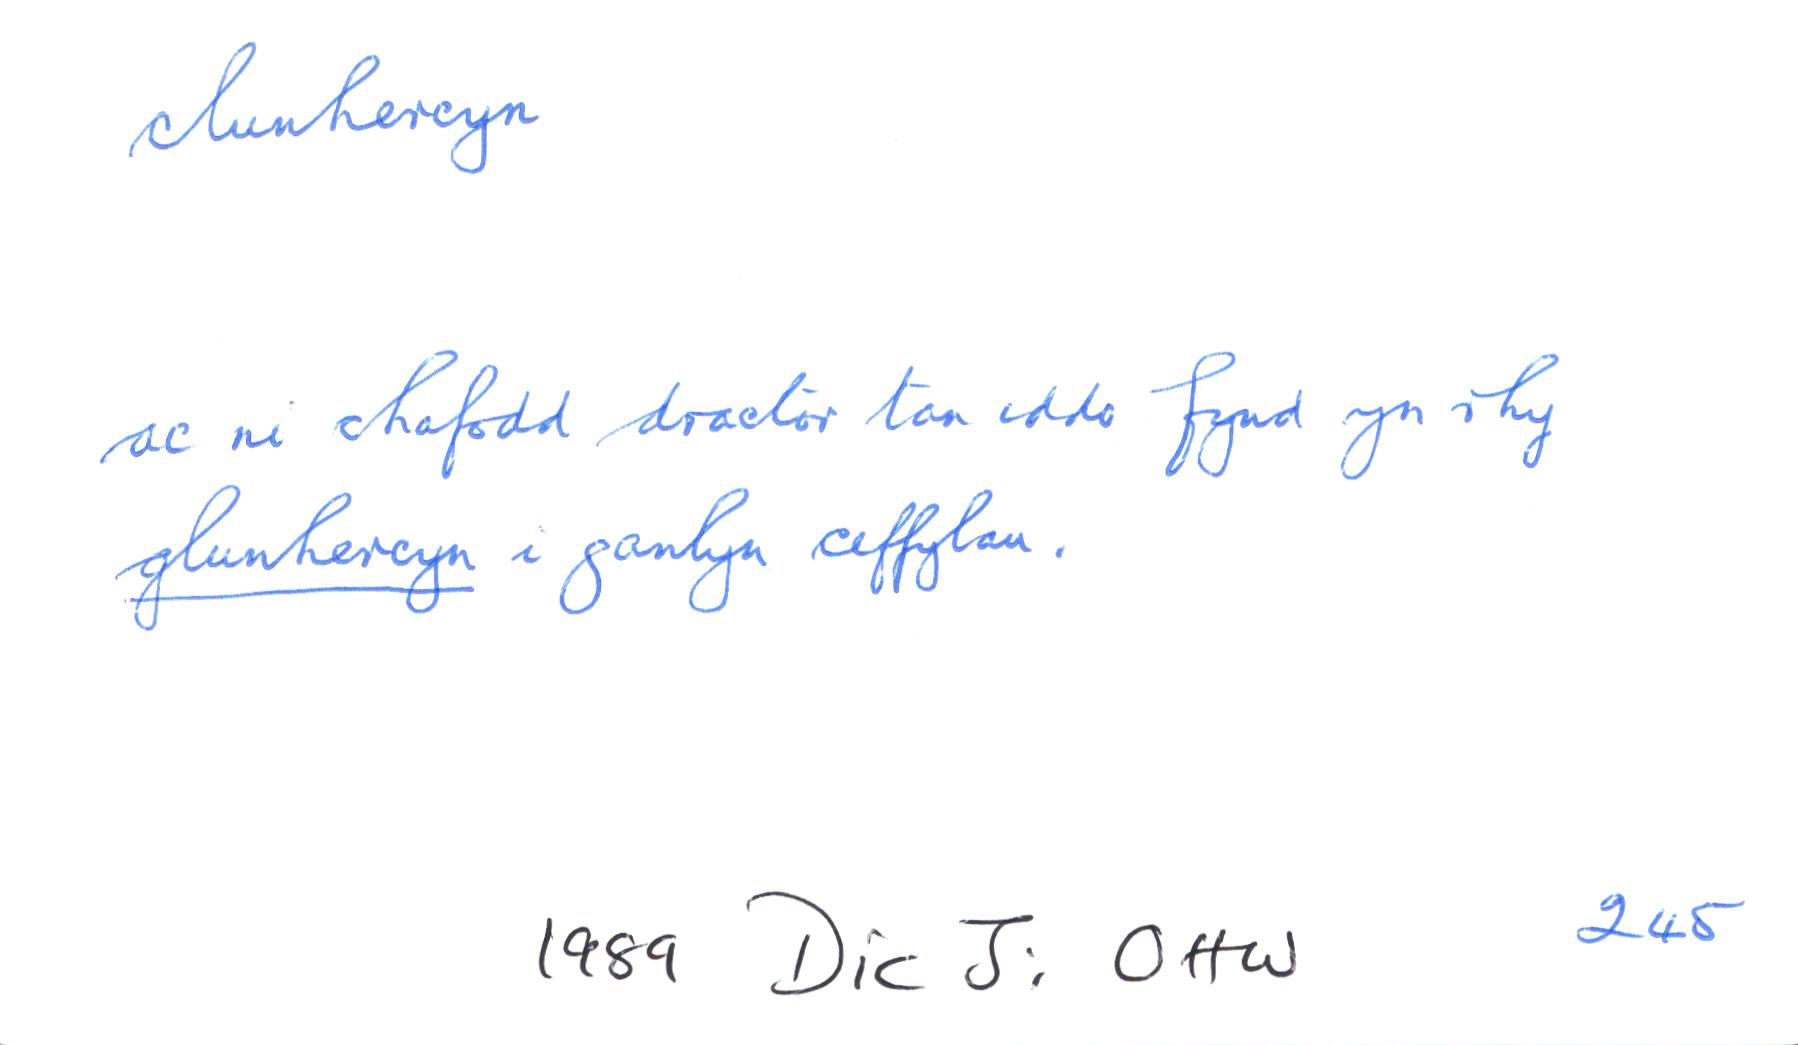 clunhercyn
ac ni chafodd dractor tan iddo fynd yn rhy
glunhercyn i ganlyn ceffylau.
1989 Dic J: OHW 245